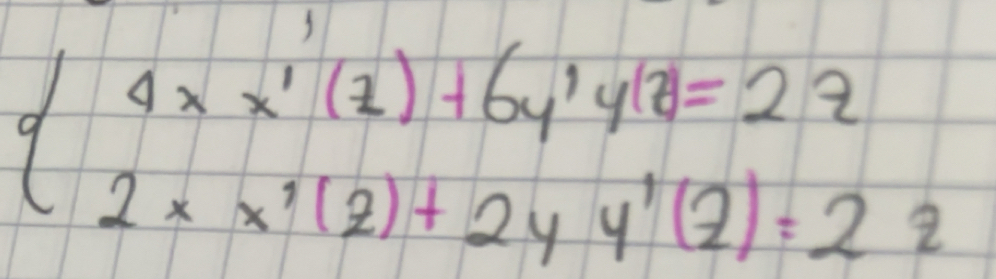 4x x'(z) + 6y'y(z) = 2z
2x x'(z) + 2y y'(z) = 2z